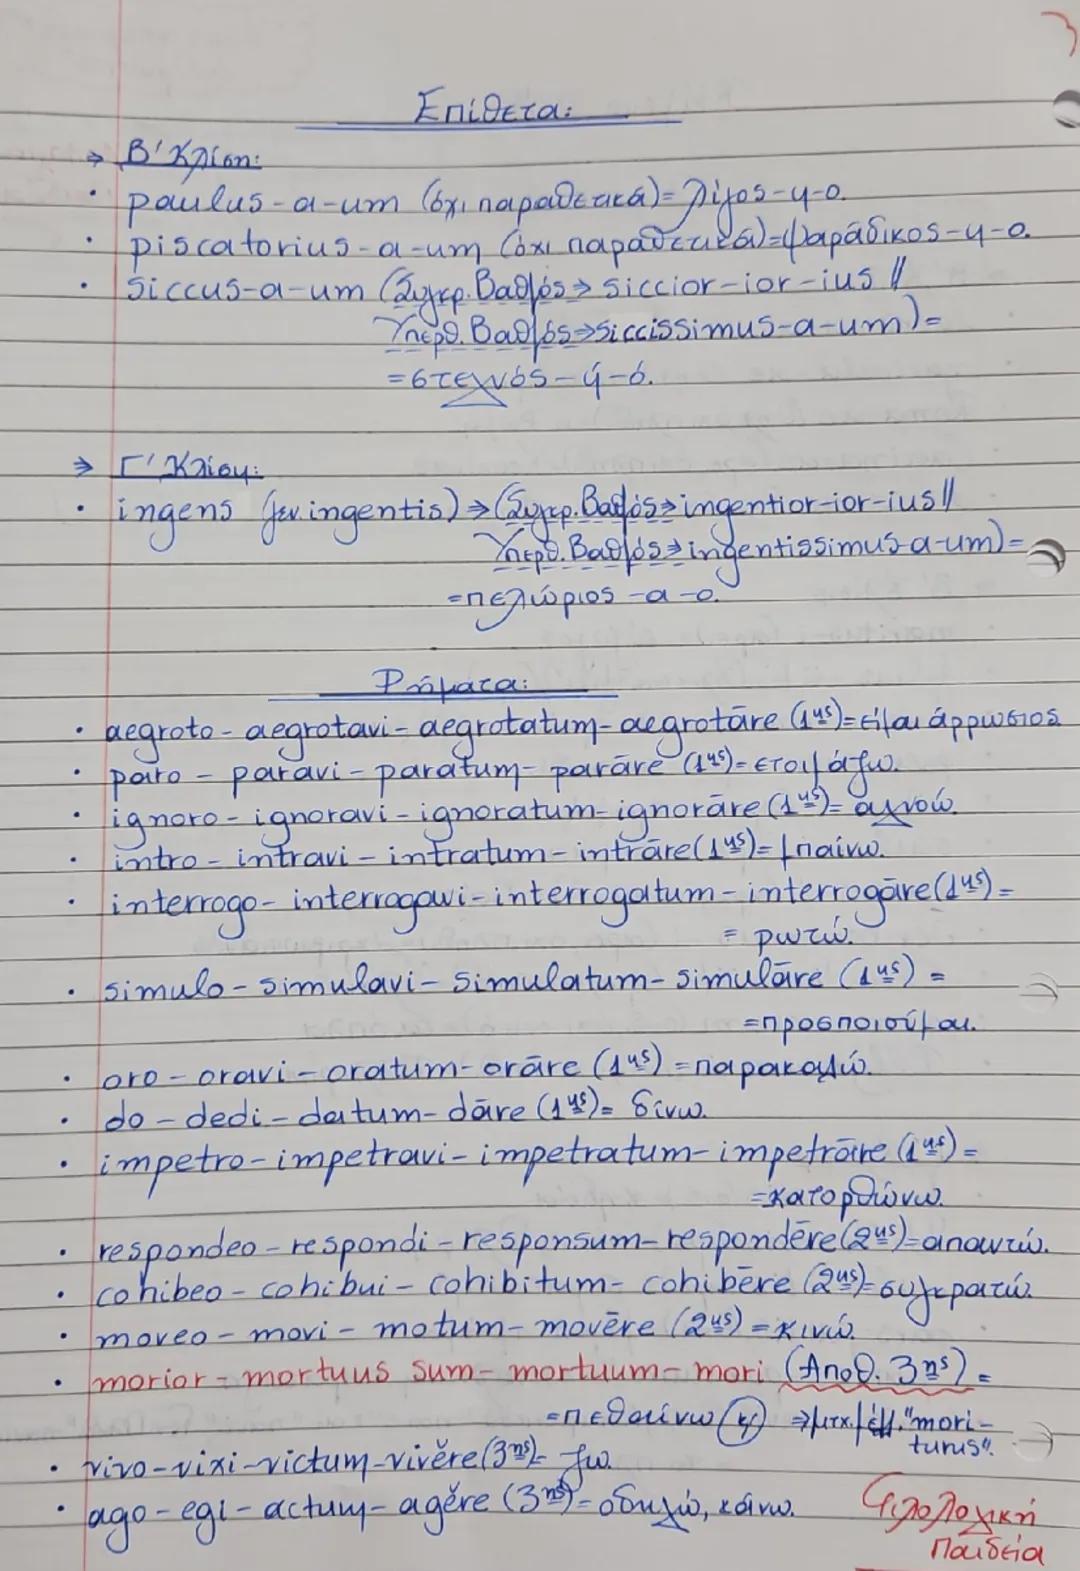 3
Επίθετα:
→ Β' Κλίση:
• paulus-a-um (όχι παραθετικά)= λίγος-η-ο.
• piscatorius-a-um (όχι παραθετικά)=ψαράδικος-η-ο.
• siccus-a-um (Συγκρ. Βαθμός→ siccior-ior-ius //
Υπερθ. Βαθμός→siccissimus-a-um)=
=στεγνός-ή-ό.
→ Γ' Κλίση:
• ingens (γεν. ingentis)→(Συγκρ. Βαθμός→ingentior-ior-ius//
Υπερθ. Βαθμός→ingentissimus-a-um)=
=πελώριος-α-ο.
Ρήματα:
• aegroto-aegrotavi-aegrotatum-aegrotāre (1ης)=είμαι άρρωστος
• paro - paravi-paratum-parāre (1ης)=ετοιμάζω.
• ignoro-ignoravi-ignoratum-ignorāre (1ης)= αγνοώ.
• intro-intravi-intratum-intrāre (1ης)= μπαίνω.
• interrogo-interrogavi-interrogatum-interrogāre (1ης)=
= ρωτώ.
• simulo-simulavi-simulatum-simulāre (1ης) =
=προσποιούμαι.
• oro-oravi-oratum-orāre (1ης) =παρακαλώ.
• do-dedi-datum-dāre (1ης)= δίνω.
• impetro-impetravi-impetratum-impetrāre (1ης)=
=κατορθώνω.
• respondeo-respondi-responsum-respondēre (2ης)=απαντώ.
• cohibeo-cohibui-cohibitum-cohibēre (2ης)=συγκρατώ.
• moveo-movi-motum-movēre (2ης) =κινώ.
• morior-mortuus sum-mortuum-mori (Αποθ. 3ης) =
=πεθαίνω →μτχ. μέλλ. "mori-
turus".
• vivo-vixi-victum-vivĕre (3ης)= ζω.
• ago-egi-actum-agĕre (3ης)=οδηγώ, κάνω.
Φιλολογική
Παιδεία